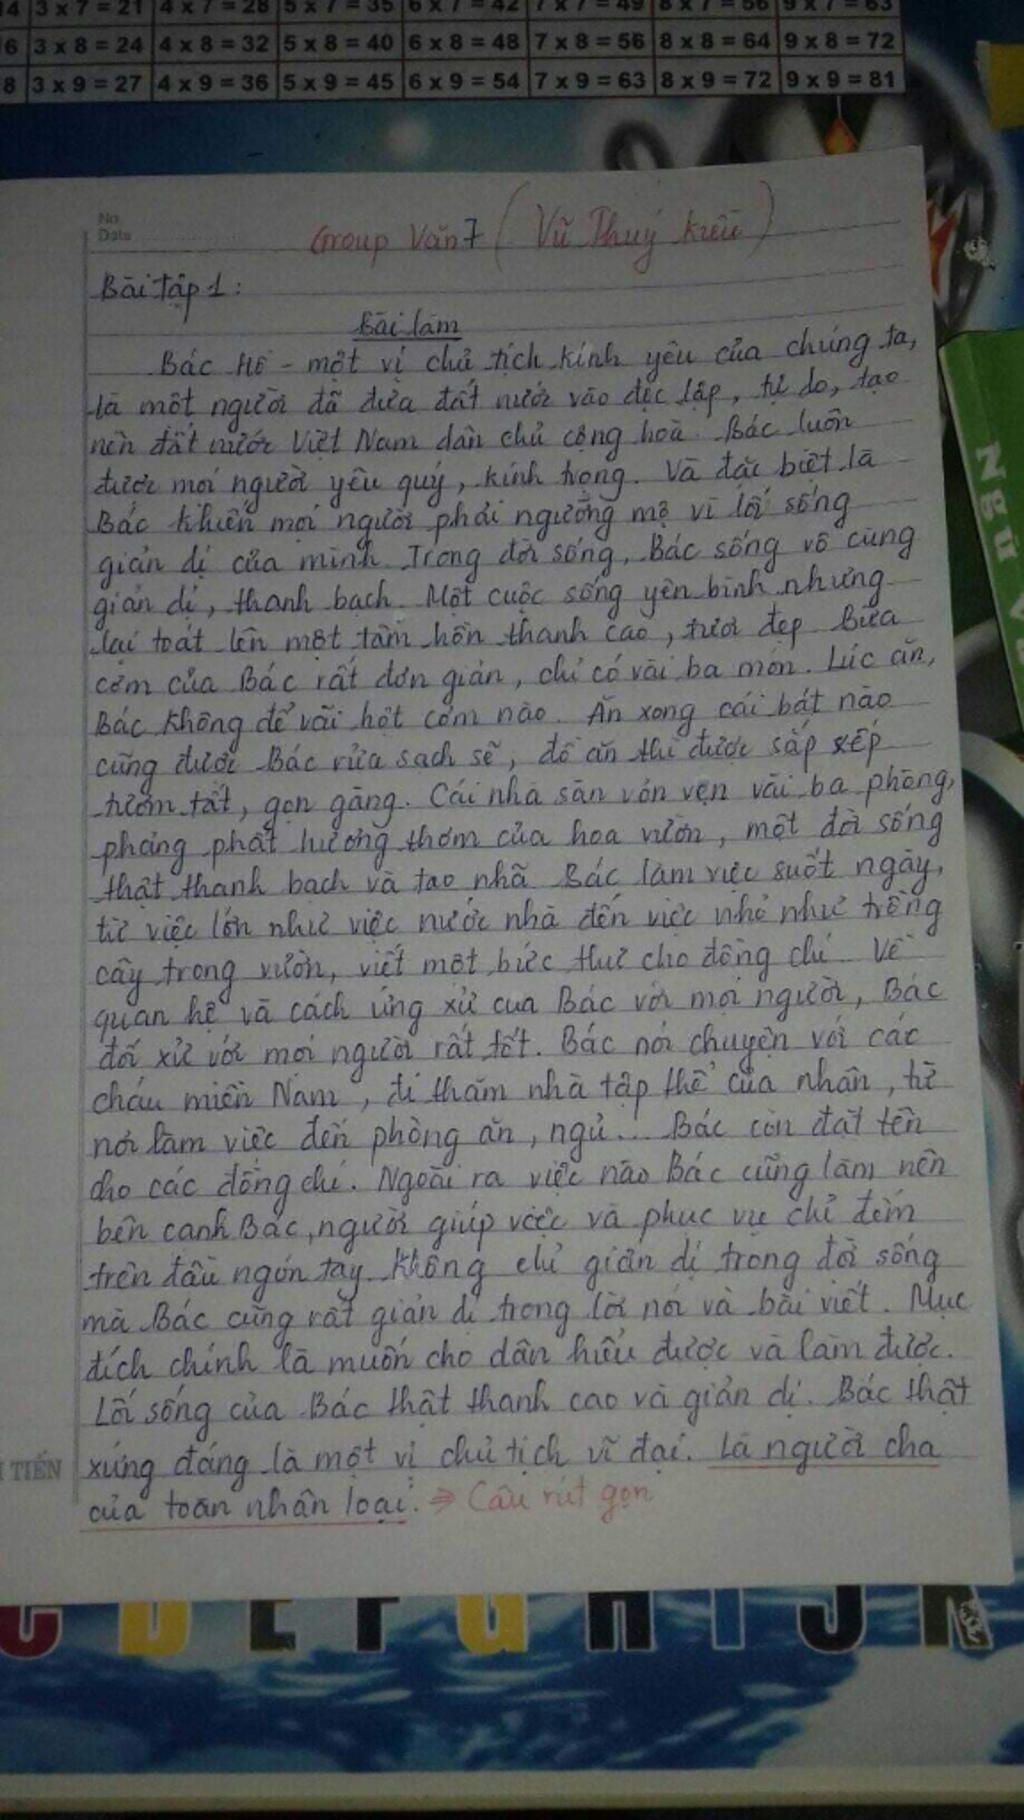 4 3 x 7 = 21 4 x 7 = 28 5 x 7 = 35 6 x 7 = 42 7 x 7 = 49 8 x 7 = 56 9 x 7 = 63
6 3 x 8 = 24 4 x 8 = 32 5 x 8 = 40 6 x 8 = 48 7 x 8 = 56 8 x 8 = 64 9 x 8 = 72
8 3 x 9 = 27 4 x 9 = 36 5 x 9 = 45 6 x 9 = 54 7 x 9 = 63 8 x 9 = 72 9 x 9 = 81
No.
Date
Group Văn 7 (Vũ Thuý Kiều)
Bài tập 1:
Bài làm
Bác Hồ - một vị chủ tịch kính yêu của chúng ta,
là một người đã đưa đất nước vào độc lập, tự do, tạo
nên đất nước Việt Nam dân chủ cộng hoà. Bác luôn
được mọi người yêu quý, kính trọng. Và đặc biệt là
Bác khiến mọi người phải ngưỡng mộ vì lối sống
giản dị của mình. Trong đời sống, Bác sống vô cùng
giản dị, thanh bạch. Một cuộc sống yên bình nhưng
lại toát lên một tâm hồn thanh cao, tươi đẹp. Bữa
cơm của Bác rất đơn giản, chỉ có vài ba món. Lúc ăn,
Bác không để vãi hột cơm nào. Ăn xong cái bát nào
cũng được Bác rửa sạch sẽ, đồ ăn thì được sắp xếp
tươm tất, gọn gàng. Cái nhà sàn vỏn vẹn vài ba phòng,
phảng phất hương thơm của hoa vườn, một đời sống
thật thanh bạch và tao nhã. Bác làm việc suốt ngày,
từ việc lớn như việc nước nhà đến việc nhỏ như trồng
cây trong vườn, viết một bức thư cho đồng chí. Về
quan hệ và cách ứng xử của Bác với mọi người, Bác
đối xử với mọi người rất tốt. Bác nói chuyện với các
cháu miền Nam, đi thăm nhà tập thể của nhân, từ
nơi làm việc đến phòng ăn, ngủ... Bác còn đặt tên
cho các đồng chí. Ngoài ra việc nào Bác cũng làm nên
bên cạnh Bác, người giúp việc và phục vụ chỉ đếm
trên đầu ngón tay. Không chỉ giản dị trong đời sống
mà Bác cũng rất giản dị trong lời nói và bài viết. Mục
đích chính là muốn cho dân hiểu được và làm được.
Lối sống của Bác thật thanh cao và giản dị. Bác thật
xứng đáng là một vị chủ tịch vĩ đại. Là người cha
của toàn nhân loại. ⇒ Câu rút gọn
TIẾN
Ngữ V
C D E F G H I J K